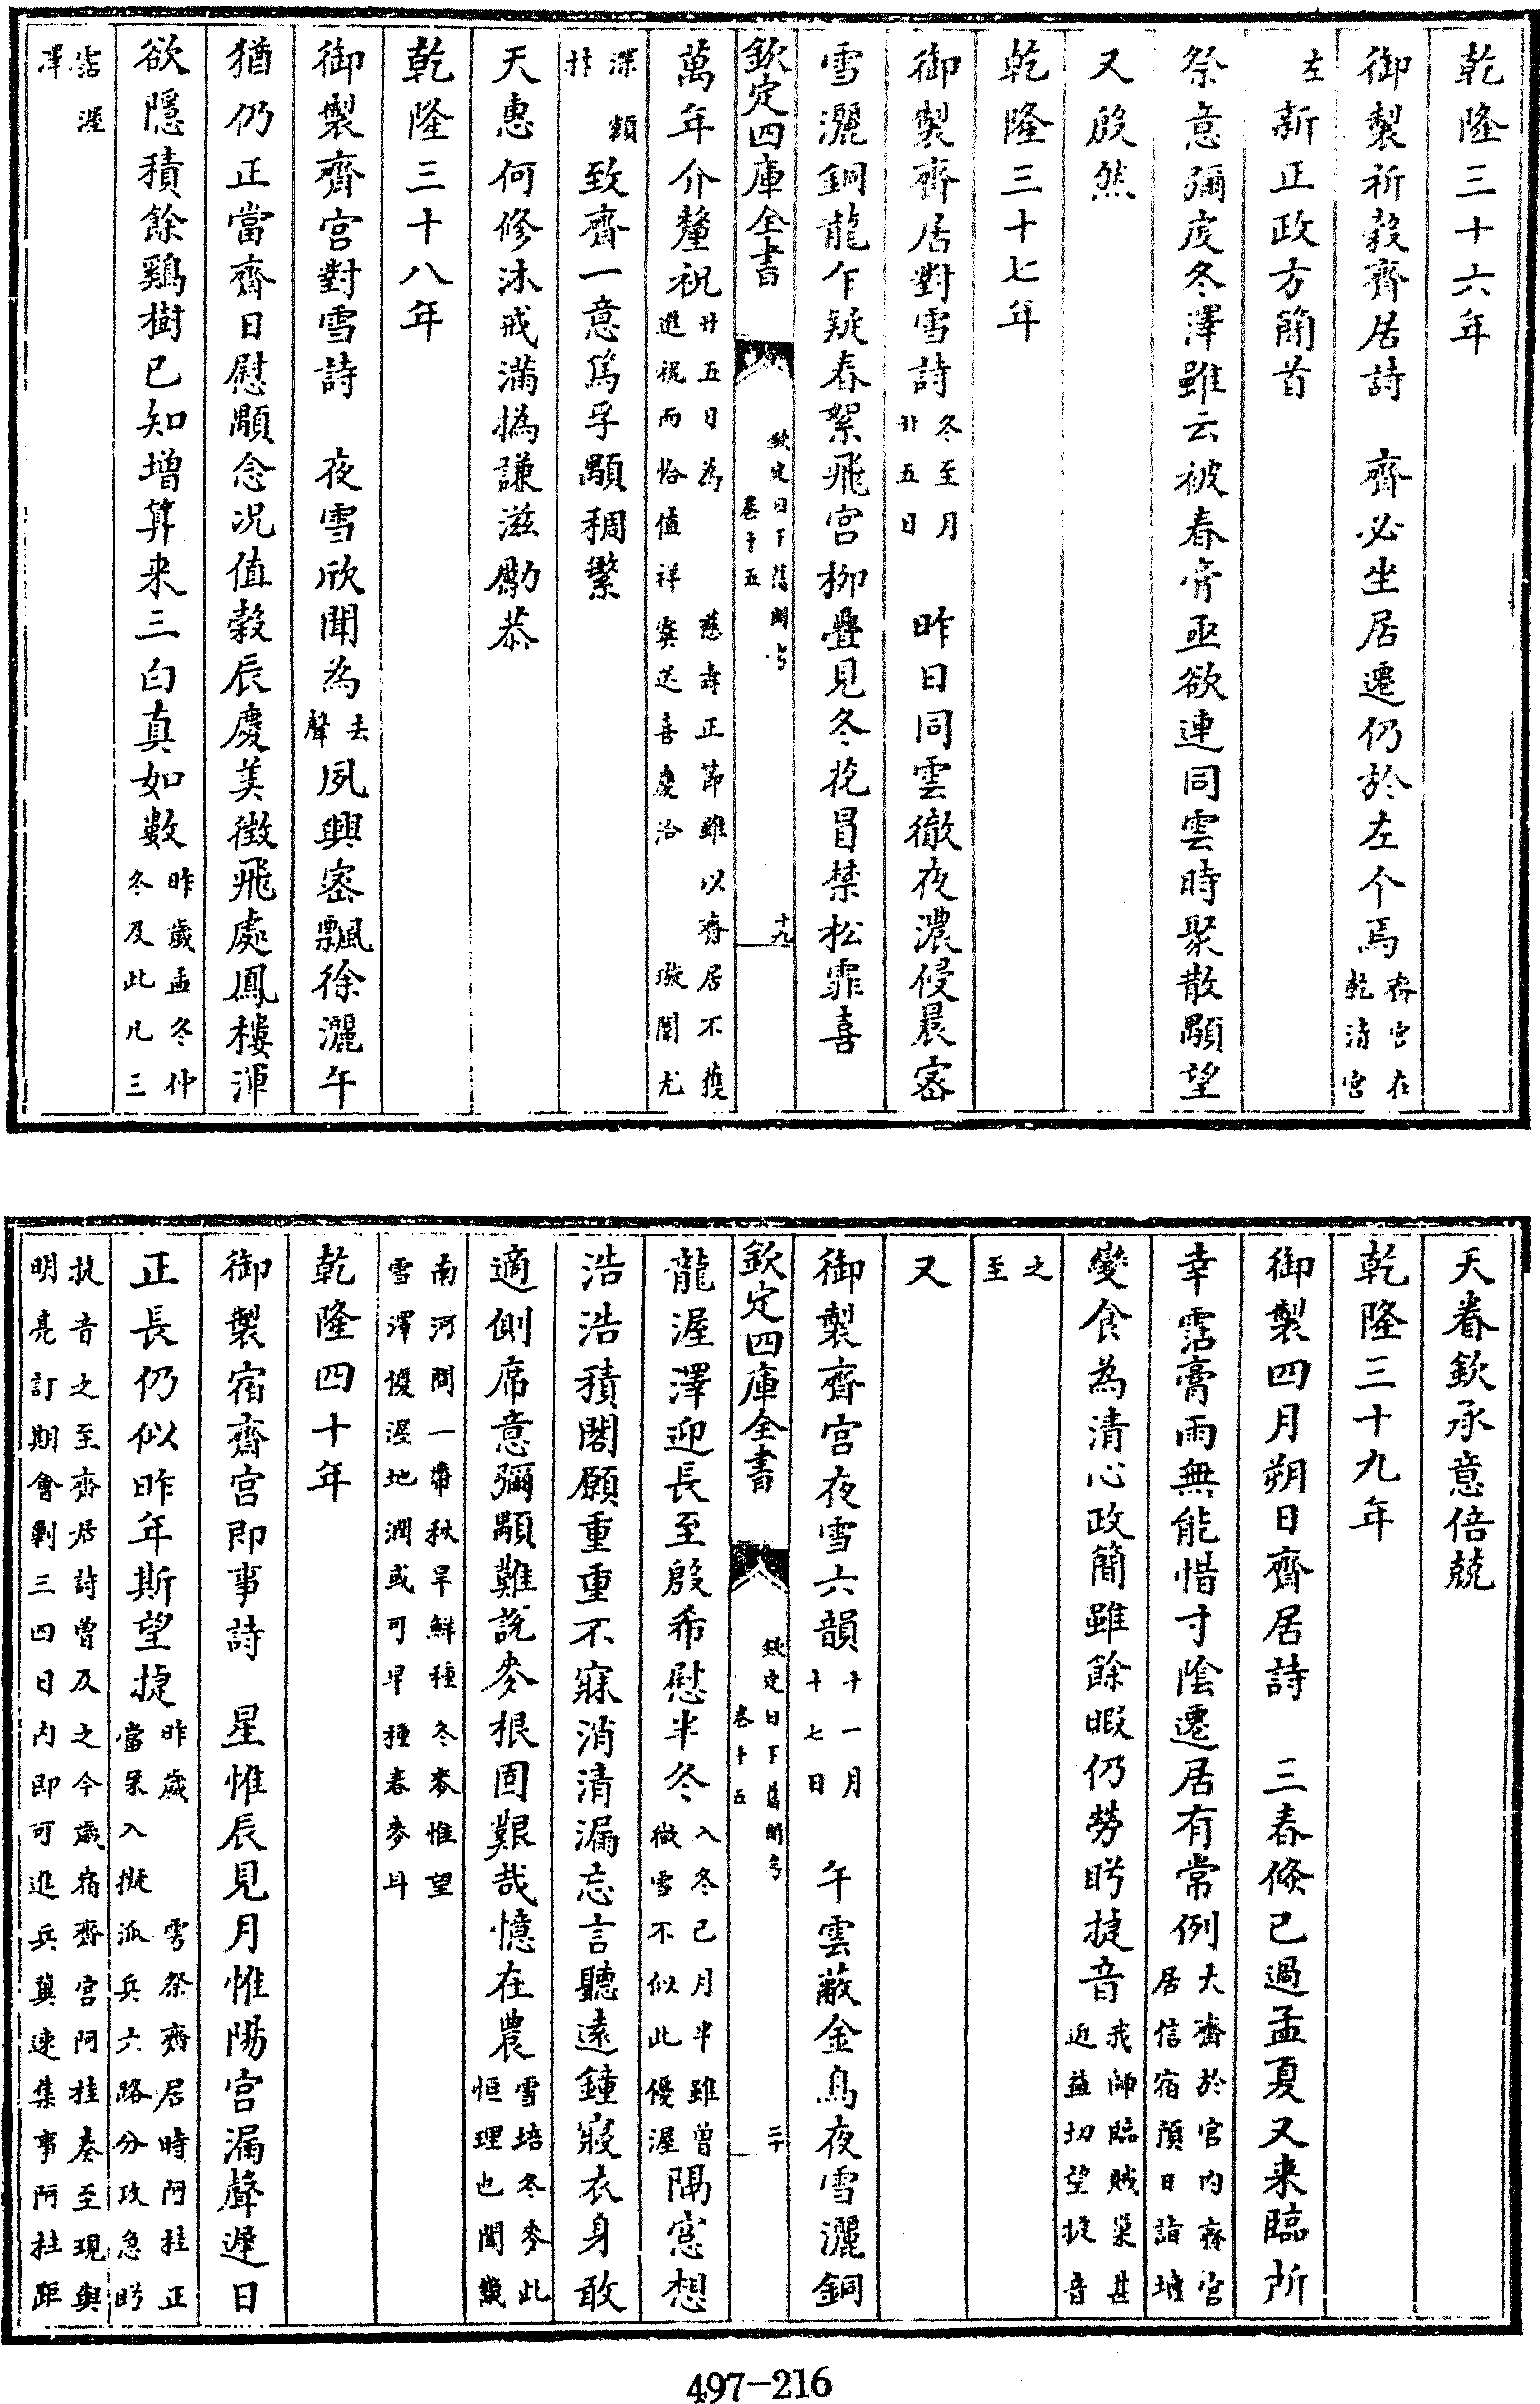 乾隆三十六年
御製祈穀齋居詩　齋必坐居遷仍於左个焉齋宮在乾清宮
左新正政方簡首
祭意彌虔冬澤雖云被春膏亟欲連同雲時聚散顒望
又殷然
乾隆三十七年
御製齋居對雪詩冬至月廿五日　昨日同雲徹夜濃侵晨密
雪灑銅龍乍疑春絮飛宮柳疊見冬花冒禁松霏喜
欽定四庫全書
欽定日下舊聞考
卷十五
十九
萬年介釐祝廿五日為　慈壽正節雖以齋居不獲進祝而恰值祥霙送喜慶洽　璇闈尤
深額抃致齋一意篤孚顒稠繁
天惠何修沐戒滿撝謙滋勵恭
乾隆三十八年
御製齋宮對雪詩　夜雪欣聞為去聲夙興密飄徐灑午
猶仍正當齋日慰顒念況值穀辰慶美徵飛處鳳樓渾
欲隱積餘鷄樹已知增算來三白真如數昨歲孟冬仲冬及此凡三
霑渥澤
天眷欽承意倍兢
乾隆三十九年
御製四月朔日齋居詩　三春倏已過孟夏又來臨所
幸霑膏雨無能惜寸陰遷居有常例大齋於宮內齋宮居信宿預日詣壇
變食為清心政簡雖餘暇仍勞盻捷音我師臨賊巢甚近益切望捷音
之至
又
御製齋宮夜雪六韻十一月十七日　午雲蔽金烏夜雪灑銅
欽定四庫全書
欽定日下舊聞考
卷十五
二十
龍渥澤迎長至殷希慰半冬入冬已月半雖曾微雪不似此優渥隅窓想
浩浩積閣願重重不寐消清漏忘言聽遠鐘寢衣身敢
適側席意彌顒難說麥根固艱哉憶在農雪培冬麥此恒理也聞畿
南河間一帶秋旱鮮種冬麥惟望雪澤優渥地潤或可早種春麥耳
乾隆四十年
御製宿齋宮即事詩　星惟辰見月惟陽宮漏聲遲日
正長仍似昨年斯望捷昨歲　雩祭齋居時阿桂正當杲入擬派兵六路分攻急盻
捷音之至齋居詩曾及之今歲宿齋宮阿桂奏至現與明亮訂期會剿三四日內即可進兵冀速集事阿桂距
497-216